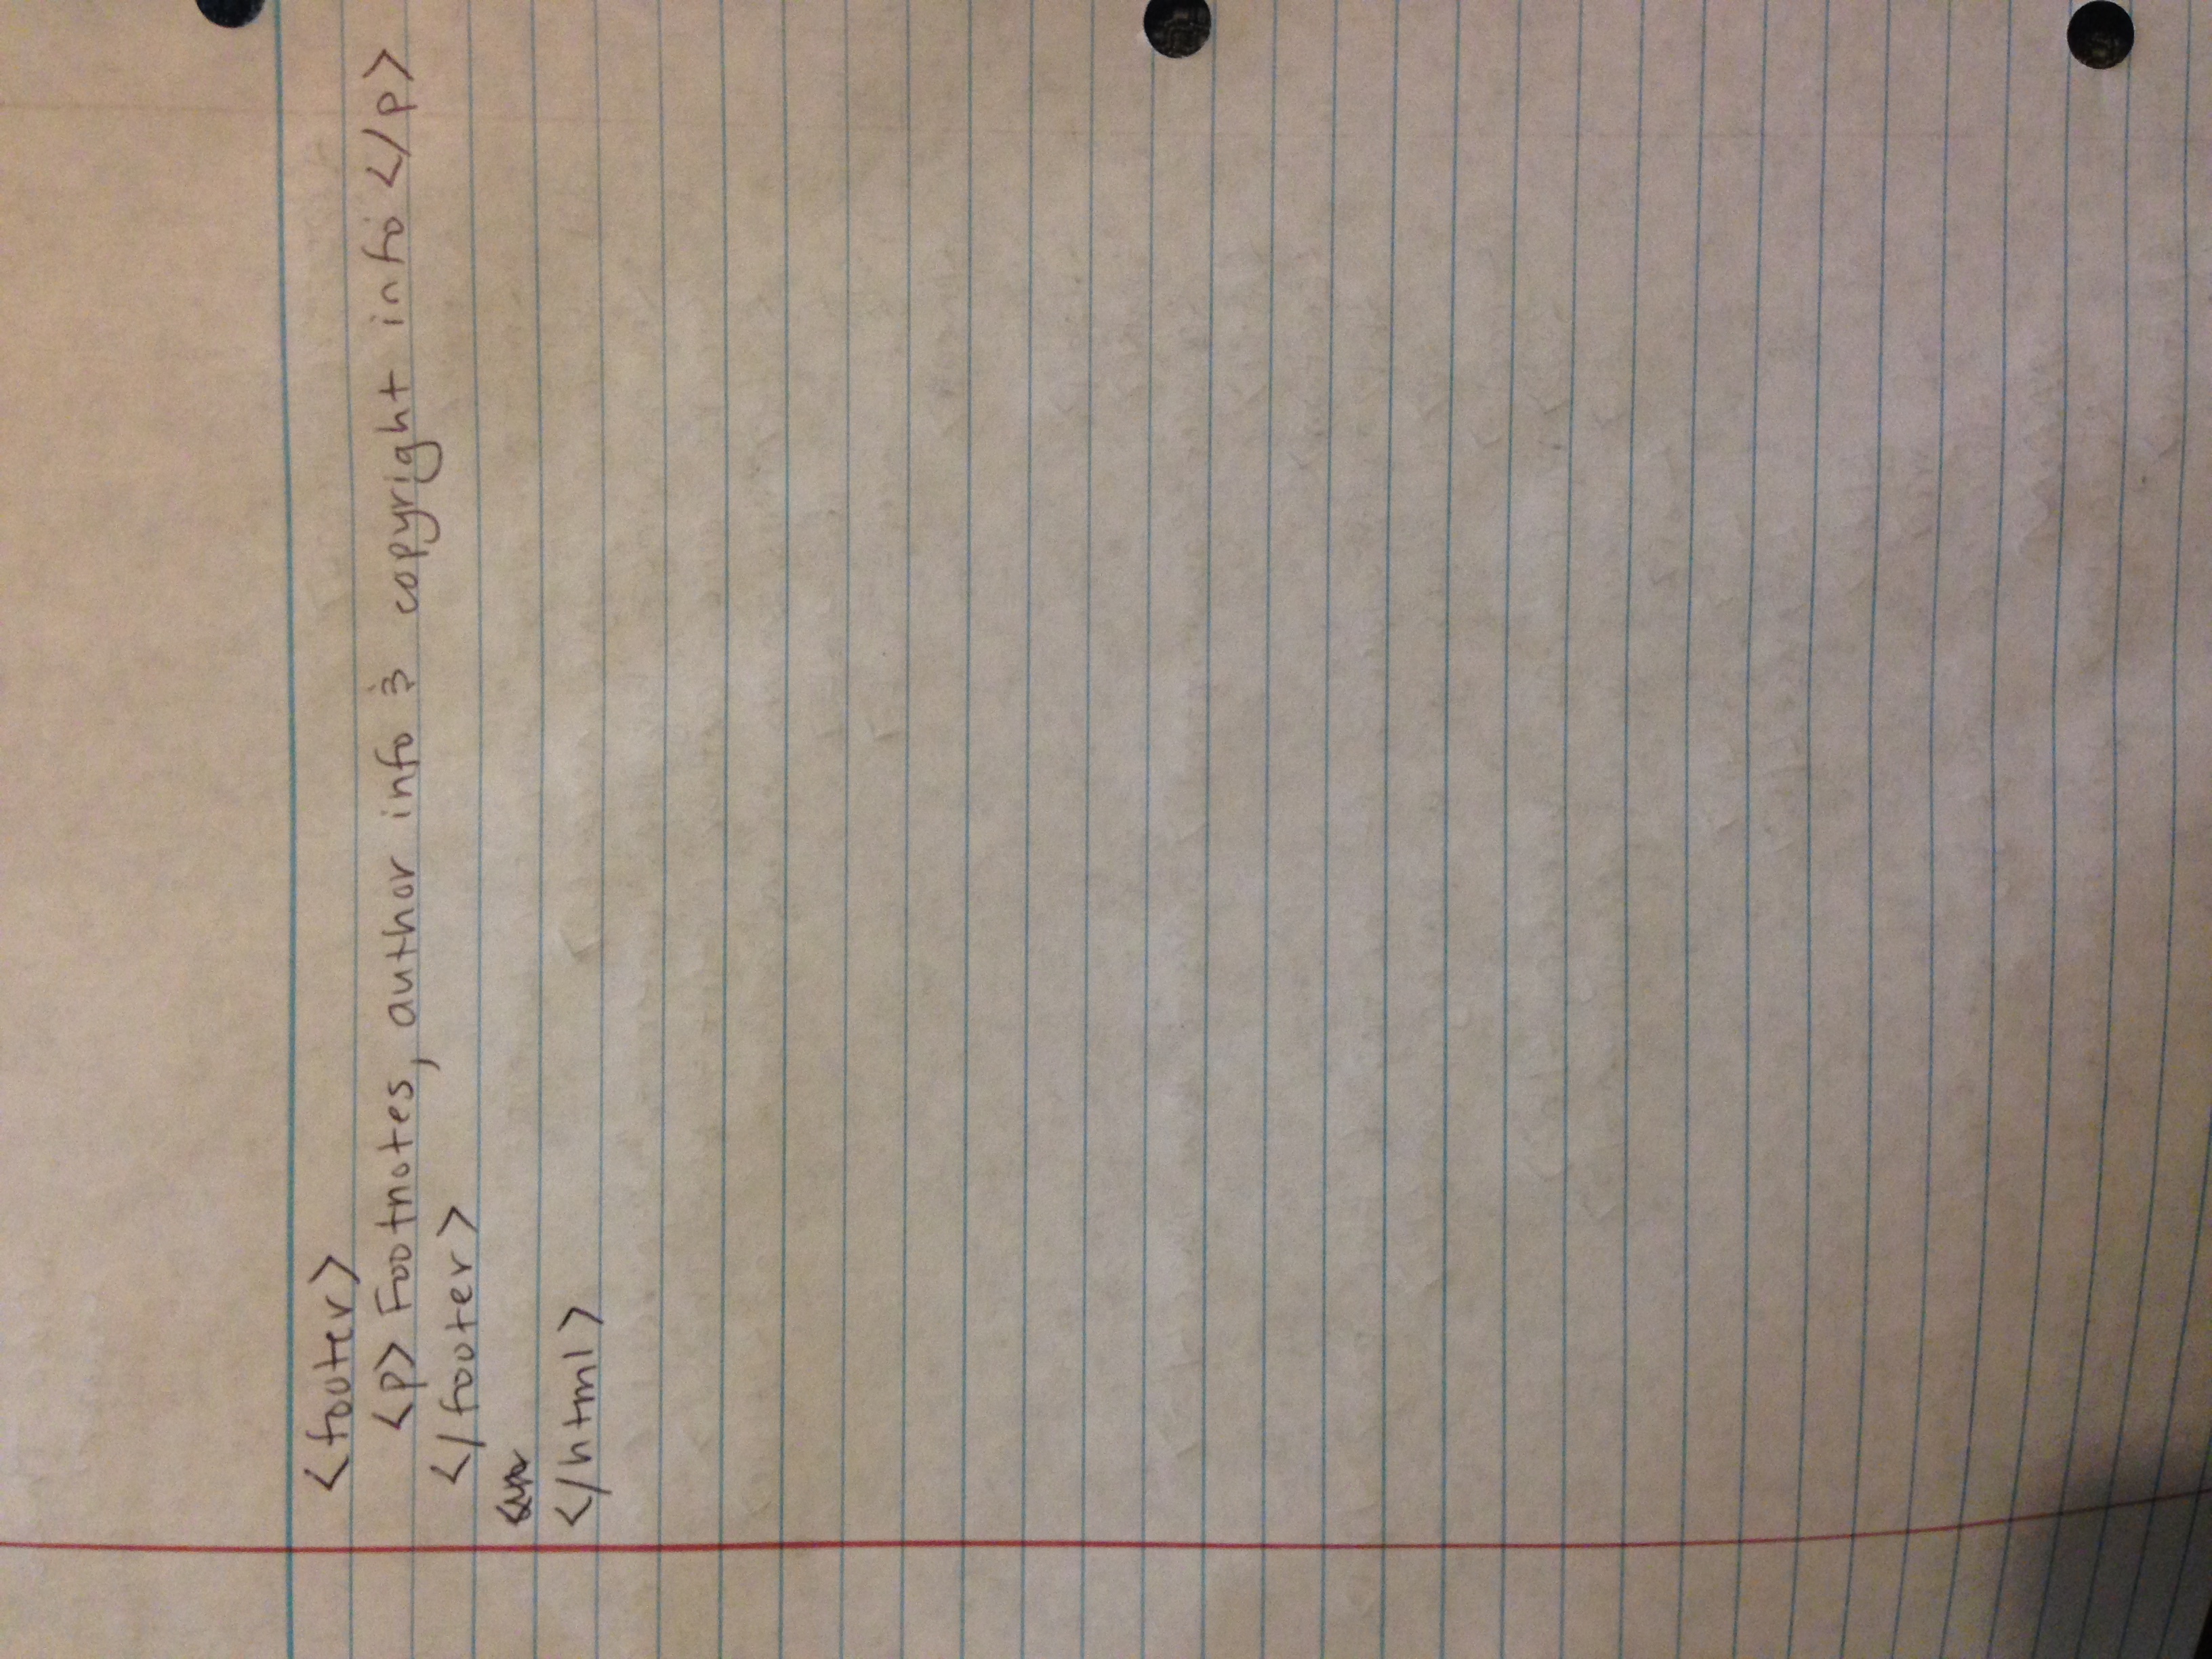 <footer>
<p> Footnotes, author info & copyright info </p>
</footer>
</html>